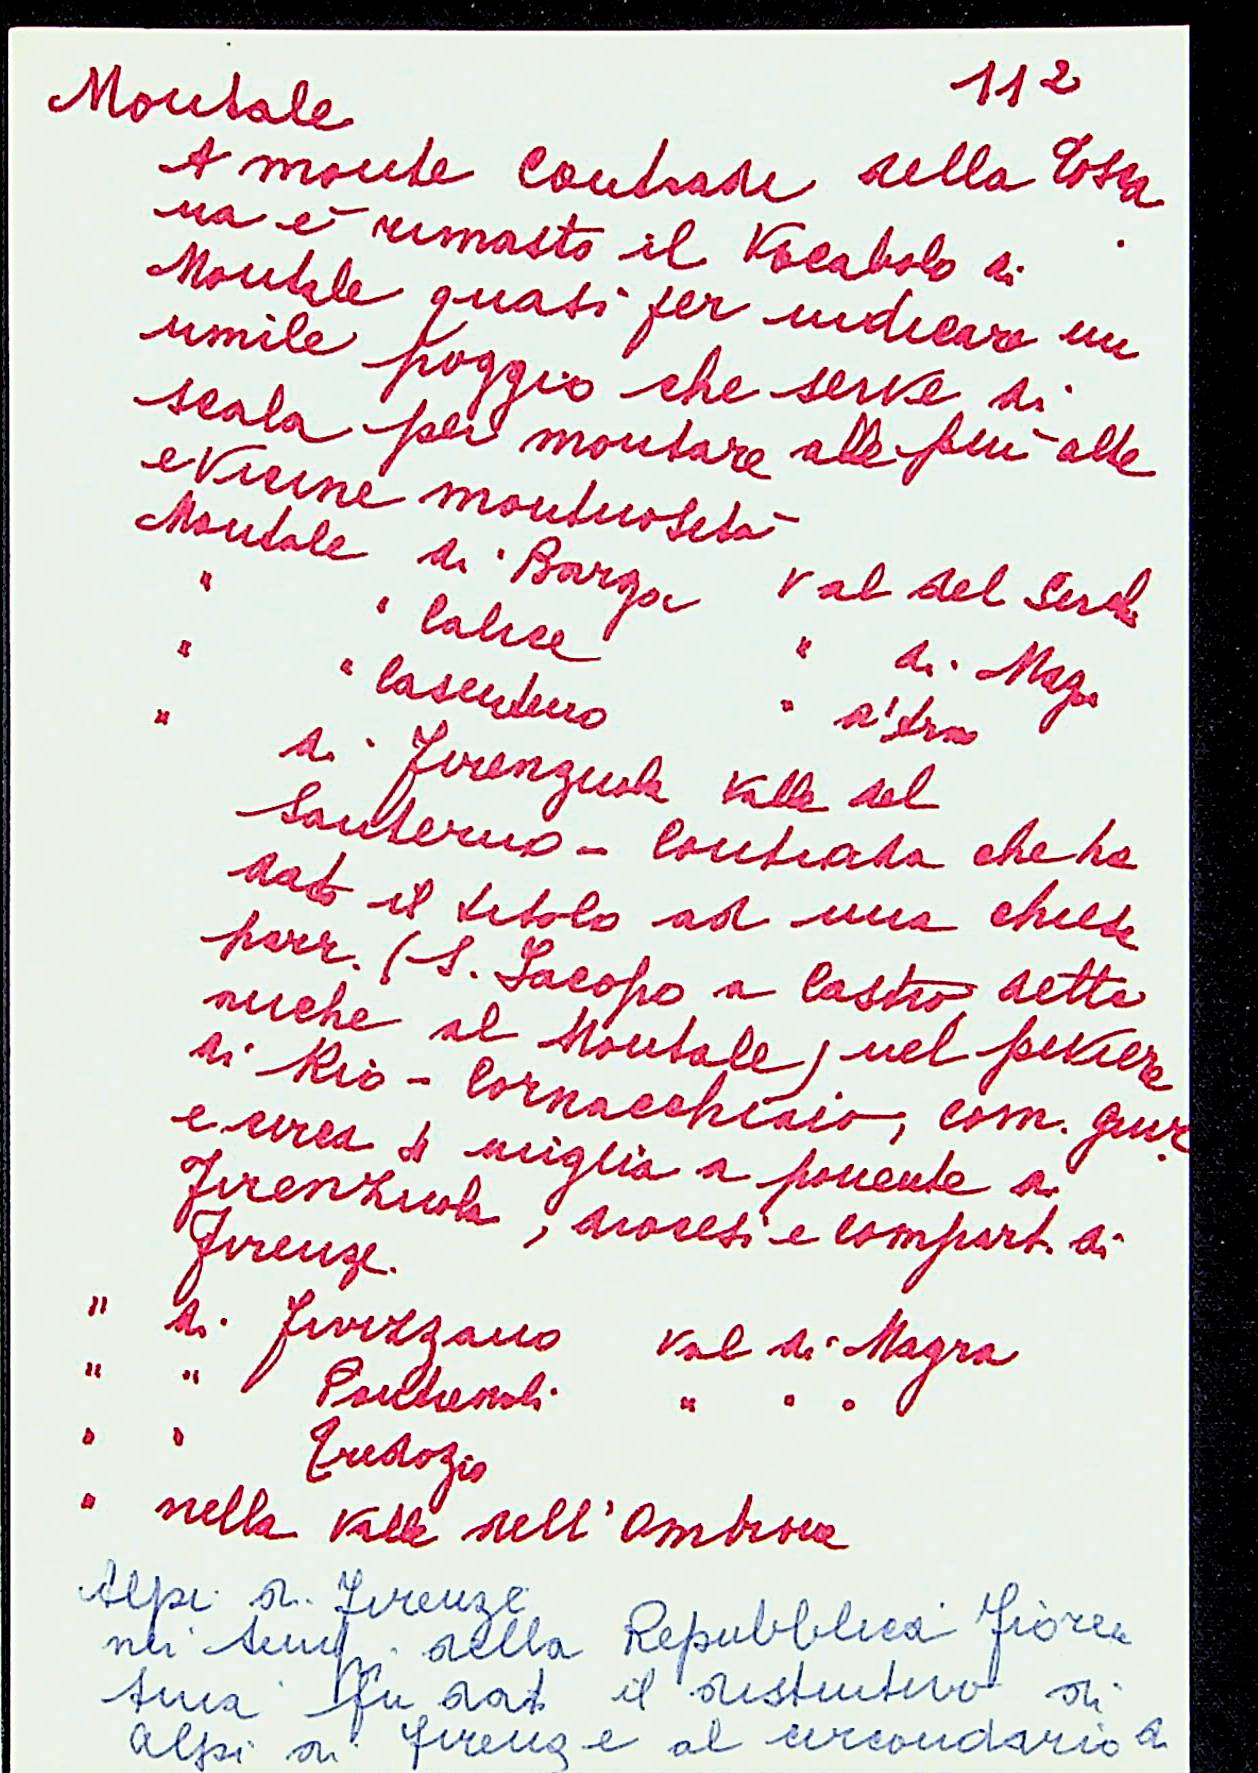 112
Montale
A monte Contrade della Tosca
na è rimasto il Vocabolo di
Montale quasi per indicare un
umile poggio che serve di
scala per montare alle più alte
e vicine montuosità
Montale di Barga Val del Serchi
" " Calice " di Magr
" " Casentino " d'Arno
" di Firenzuola Valle del
Santerno - Contrada che ha
dato il titolo ad una chiesa
parr. (S. Jacopo a Castro, detta
anche al Montale) nel piviere
di Rio - Cornacchiaio, com. giur.
e circa miglia a ponente di
Firenzuola, diocesi e compart. di
Firenze.
" di Fivizzano Val di Magra
" " Pontremoli " " "
" " Tredozio
" nella Valle dell'Ombrone
Alpi di Firenze
nei tempi della Repubblica Fioren
tina fu dato il distintivo di
Alpi di Firenze al circondario di